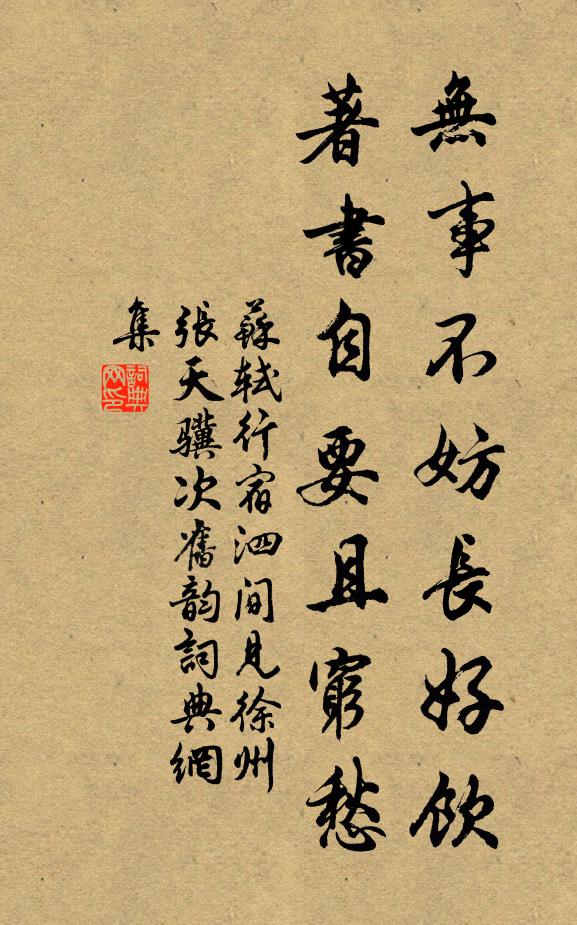 無事不妨長好飲
著書自要且窮愁
蘇軾行宿泗間見徐州
張天驥次舊韵詞典網
集
詞典
网印